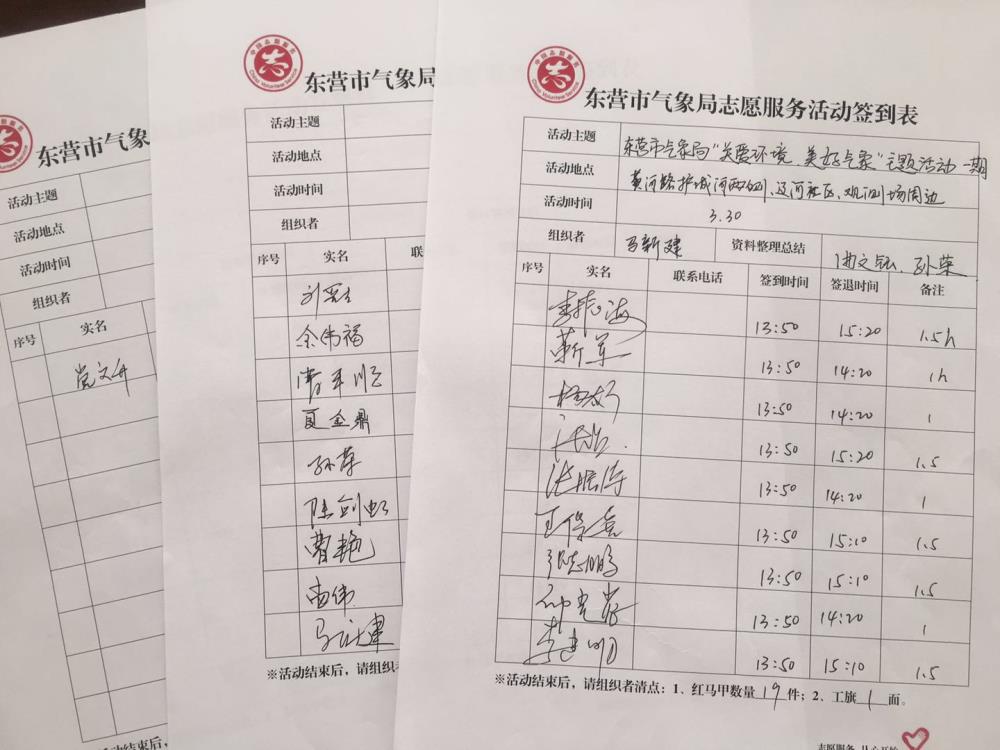 东营市气
活动主题
活动地点
活动时间
组织者
序号 实名
党文升
活动结束后,
东营市气象局
活动主题
活动地点
活动时间
组织者
序号 实名 联
余伟福
夏金鼎
孙荣
陈剑虹
曹艳
南伟
马新建
※活动结束后，请组织者
中国志愿服务
China Volunteer Service
东营市气象局志愿服务活动签到表
活动主题 东营市气象局“关爱环境、美好气象”主题活动一期
活动地点 黄河路护城河两侧、辽河社区、观测场周边
活动时间 3.30
组织者 马新建 资料整理总结 孙荣
序号 实名 联系电话 签到时间 签退时间 备注
13:50 15:20 1.5h
靳军 13:50 14:20 1h
13:50 14:20 1
13:50 15:20 1.5
13:50 14:20 1
13:50 15:10 1.5
13:50 15:10 1.5
13:50 14:20 1
李建明 13:50 15:10 1.5
※活动结束后，请组织者清点：1、红马甲数量19件；2、工旗1面。